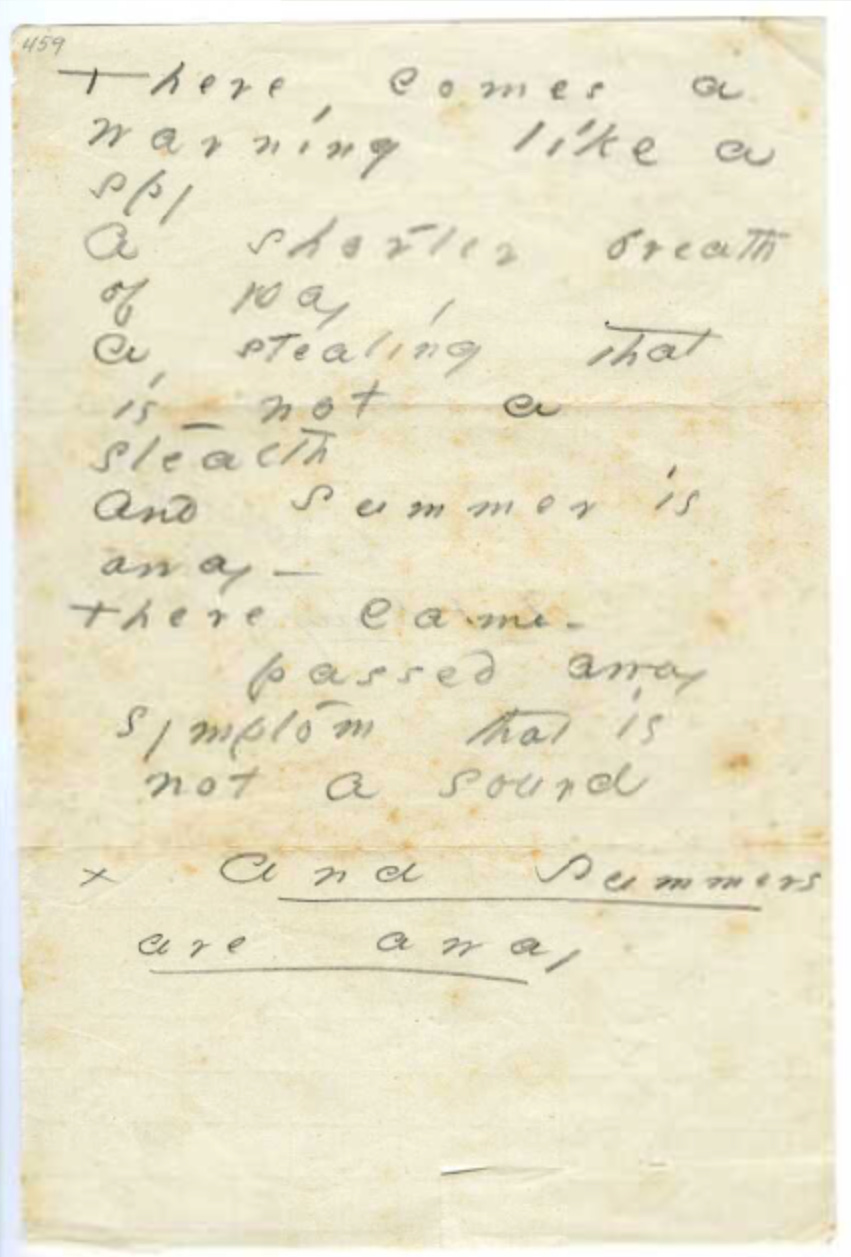 459
There comes a
warning like a
spy
A shorter breath
of Day
A stealing that
is not a
stealth
And Summer is
away —
There Came -
passed away
symptom that is
not a sound
x And Summers
are away